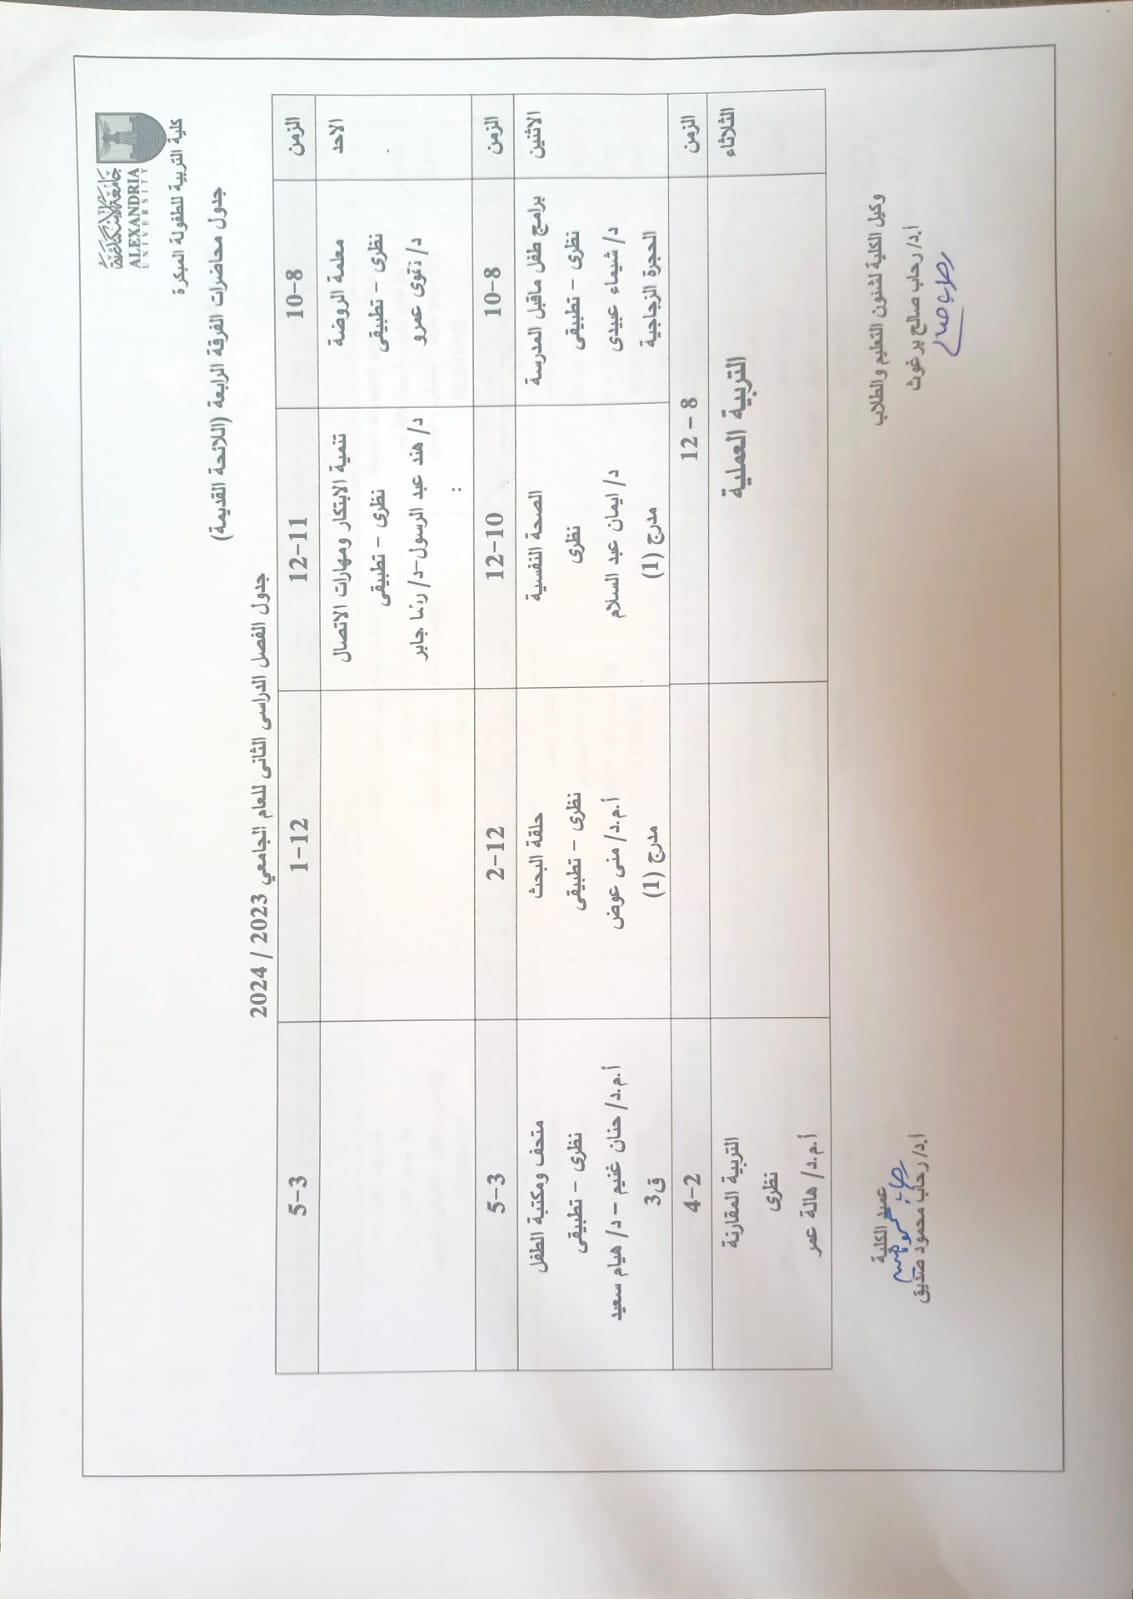 جامعة الإسكندرية
ALEXANDRIA
UNIVERSITY
كلية التربية للطفولة المبكرة
جدول محاضرات الفرقة الرابعة (اللائحة القديمة)
جدول الفصل الدراسى الثانى للعام الجامعي 2023 / 2024
الزمن 8-10 11-12 12-1 3-5
الاحد
معلمة الروضة
نظرى - تطبيقى
د/ نقوى عمرو
تنمية الابتكار ومهارات الاتصال
نظرى - تطبيقى
د/ هند عبد الرسول-د/ رشا جابر
:
الزمن 8-10 10-12 12-2 3-5
الاثنين
برامج طفل ماقبل المدرسة
نظرى - تطبيقى
د/ شيماء عبيدى
الحجرة الزجاجية
الصحة النفسية
نظرى
د/ ايمان عبد السلام
مدرج (1)
حلقة البحث
نظرى - تطبيقى
أ.م.د/ منى عوض
مدرج (1)
متحف ومكتبة الطفل
نظرى - تطبيقى
أ.م.د/ حنان غنيم - د/ هيام سعيد
ق3
الزمن 8 - 12 2-4
الثلاثاء
التربية العملية
التربية المقارنة
نظرى
أ.م.د/ هالة عمر
وكيل الكلية لشئون التعليم والطلاب
أ.د/ رحاب صالح برغوث
رحاب صالح
عميد الكلية
أ.د/ رحاب محمود صديق